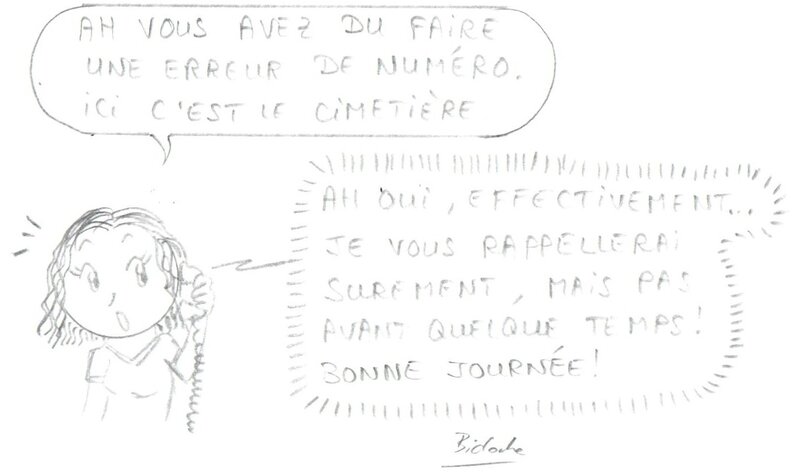 AH VOUS AVEZ DU FAIRE
UNE ERREUR DE NUMÉRO.
ICI C'EST LE CIMETIÈRE
AH OUI, EFFECTIVEMENT...
JE VOUS RAPPELLERAI
SUREMENT, MAIS PAS
AVANT QUELQUE TEMPS!
BONNE JOURNÉE!
Bidoche